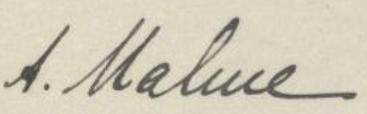 A. Malme